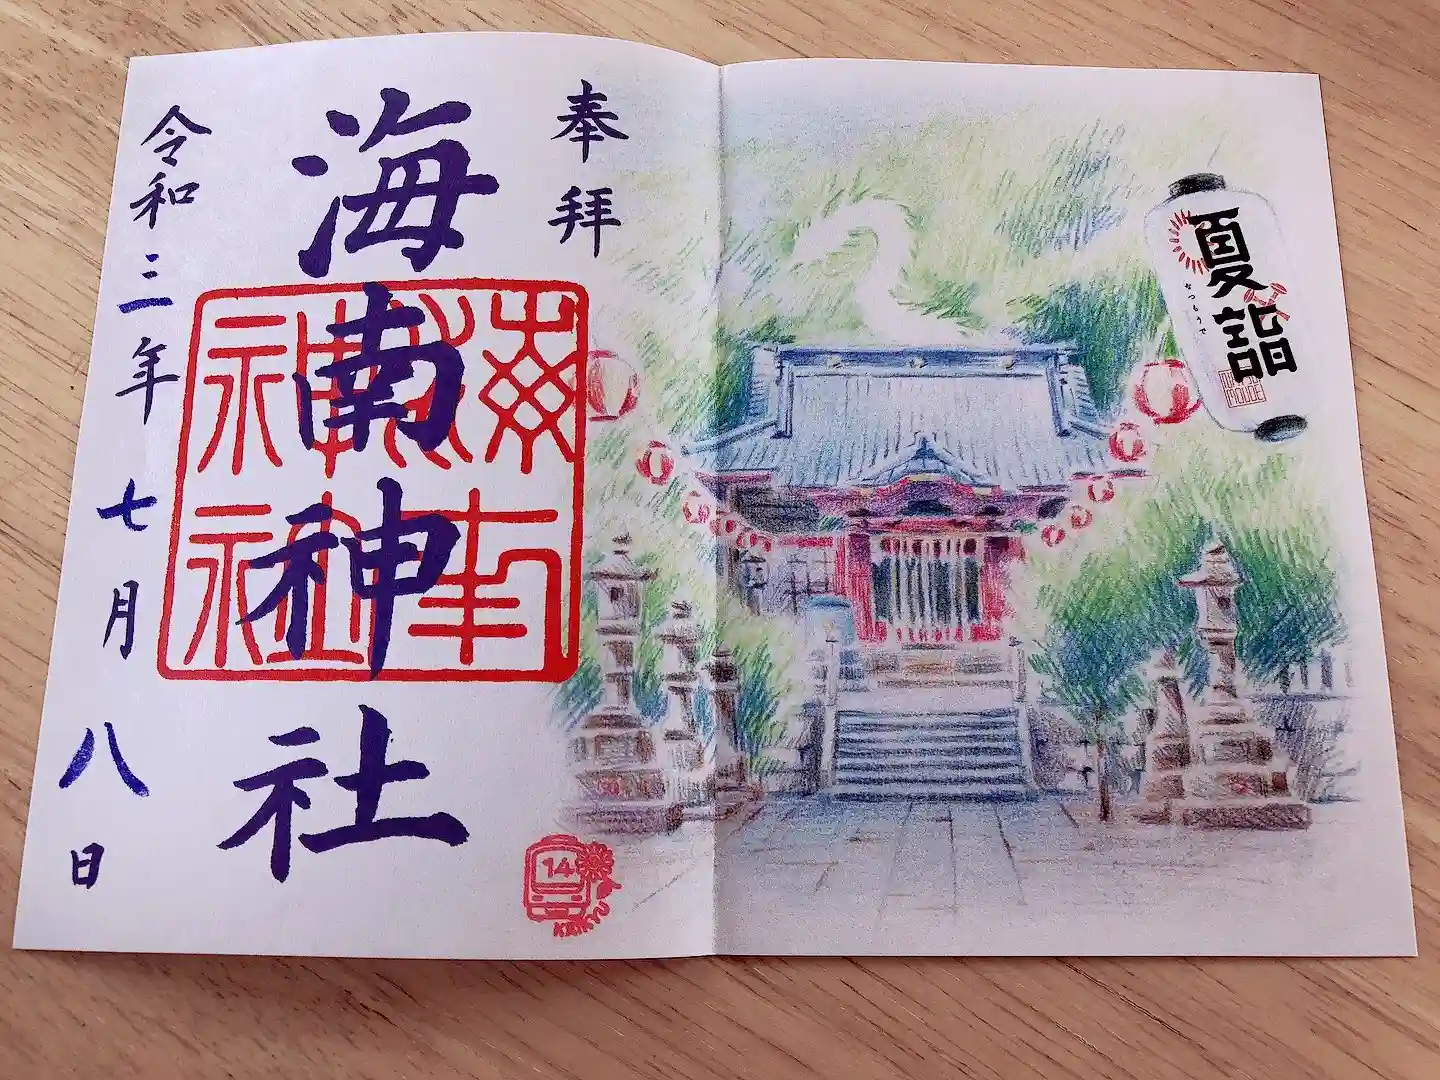 夏詣
なつもうで
奉拝
海南神社
海南神社
令和三年七月八日
14